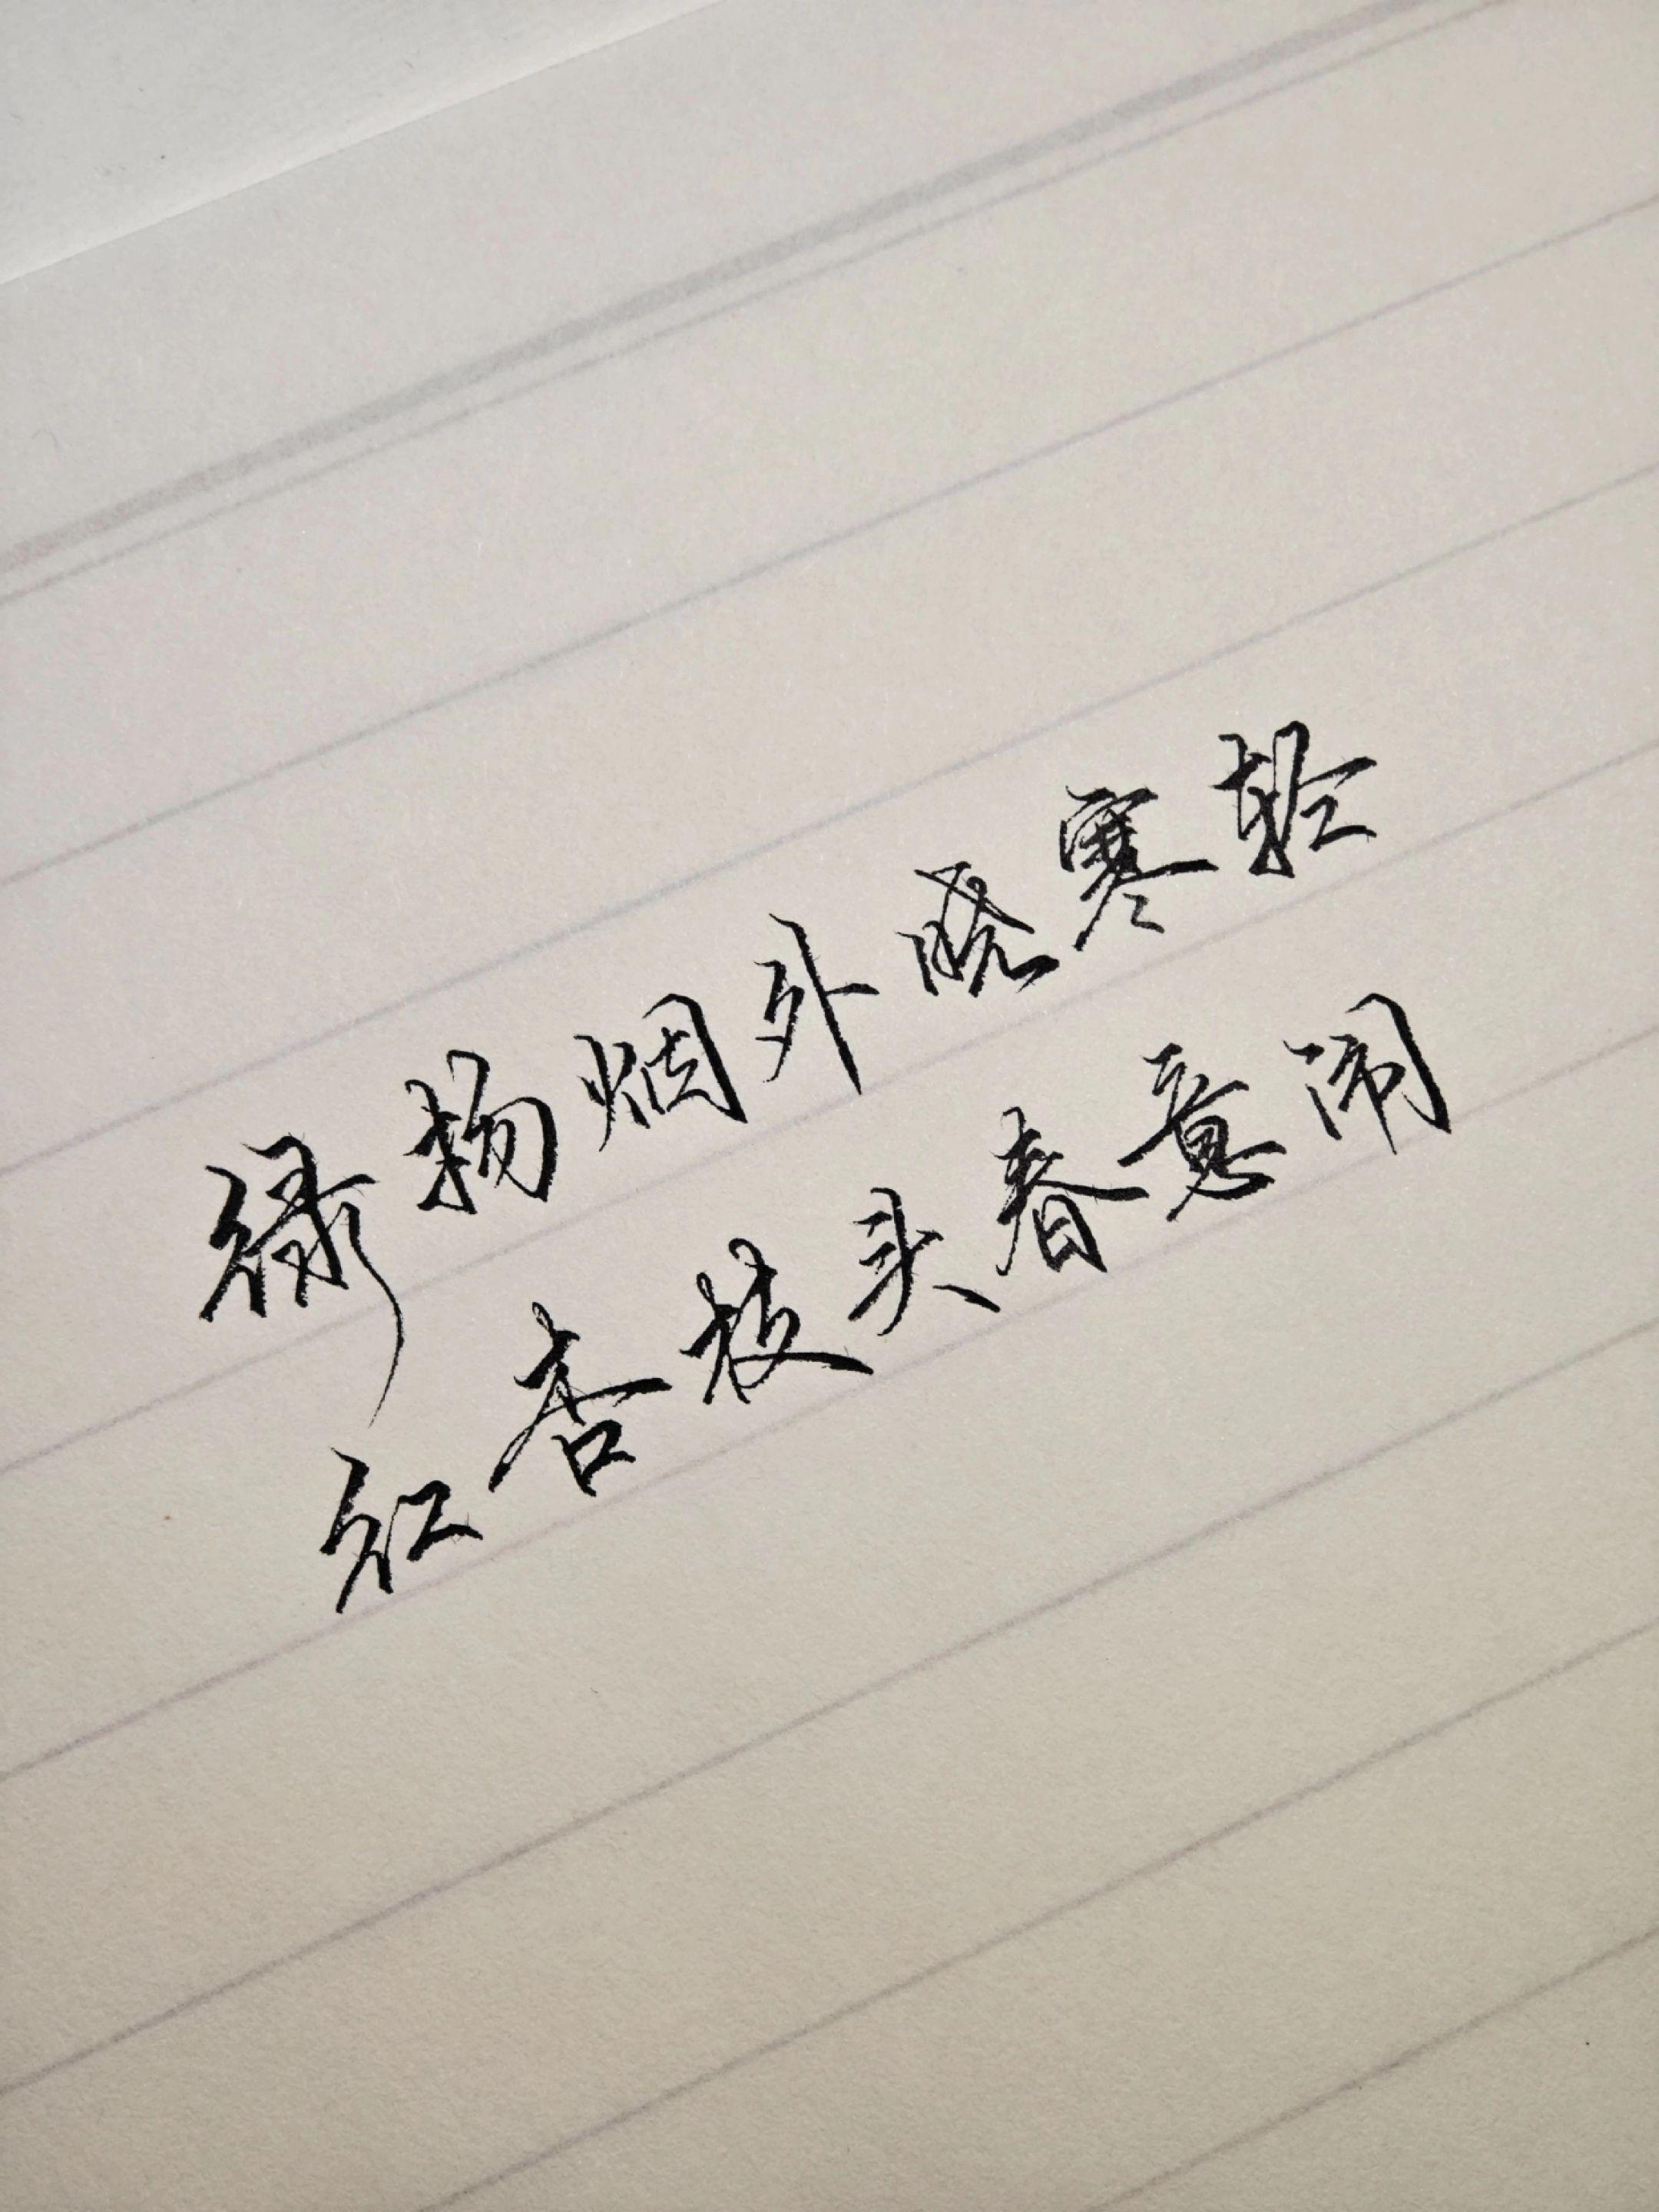 绿杨烟外晓寒轻
红杏枝头春意闹